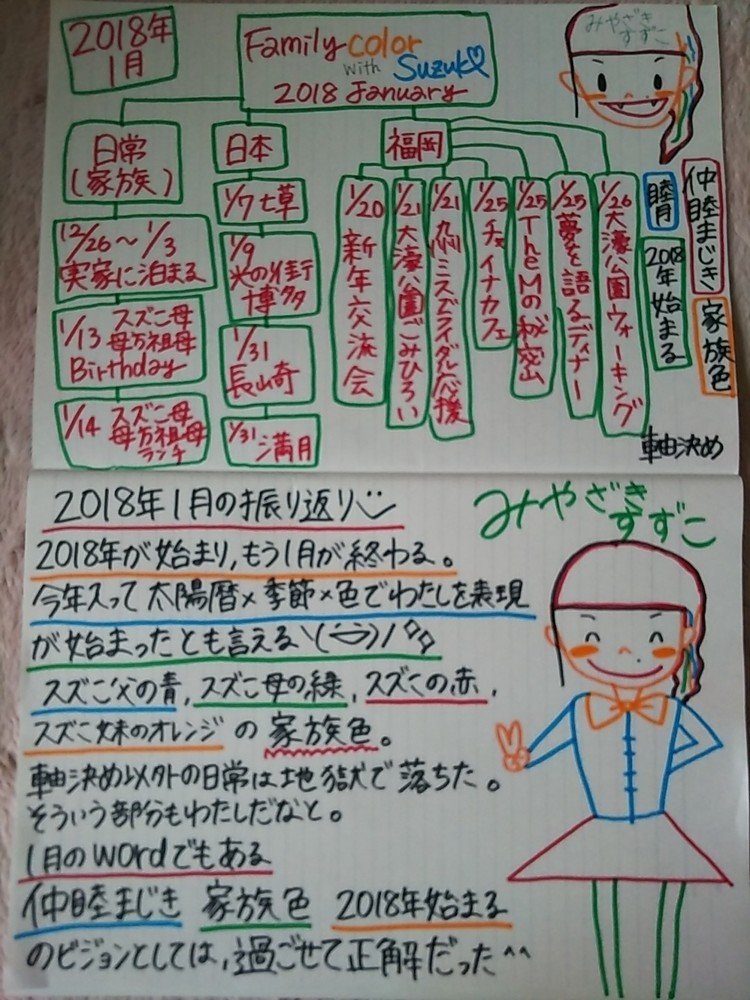 2018年
1月
Family color
with Suzuko
2018 January
みやざき
すずこ
日常
(家族)
12/26～1/3
実家に泊まる
1/13 スズこ母
母方祖母
Birthday
1/14 スズこ母
母方祖母
ランチ
日本
1/7 七草
1/9
光の街
博多
1/31
長崎
1/31 満月
福岡
1/20 新年交流会
1/21 大濠公園ごみひろい
1/21 ミスズライダル応援
1/25 チャイナカフェ
1/25 The Mの秘密山
1/25 夢を語るディナー
1/26 大濠公園ウォーキング
仲睦まじき
睦月
2018年始まる
家族色
軸決め
2018年1月の振り返り
みやざき
すずこ
2018年が始まり,もう1月が終わる。
今年入って太陽暦×季節×色でわたしを表現
が始まったとも言える
スズこ父の青,スズこ母の緑,スズこの赤,
スズこ妹のオレンジの家族色。
軸決め以外の日常は地獄で落ちた。
そういう部分もわたしだなと。
1月のwordでもある
仲睦まじき 家族色 2018年始まる
のビジョンとしては,過ごせて正解だった^^